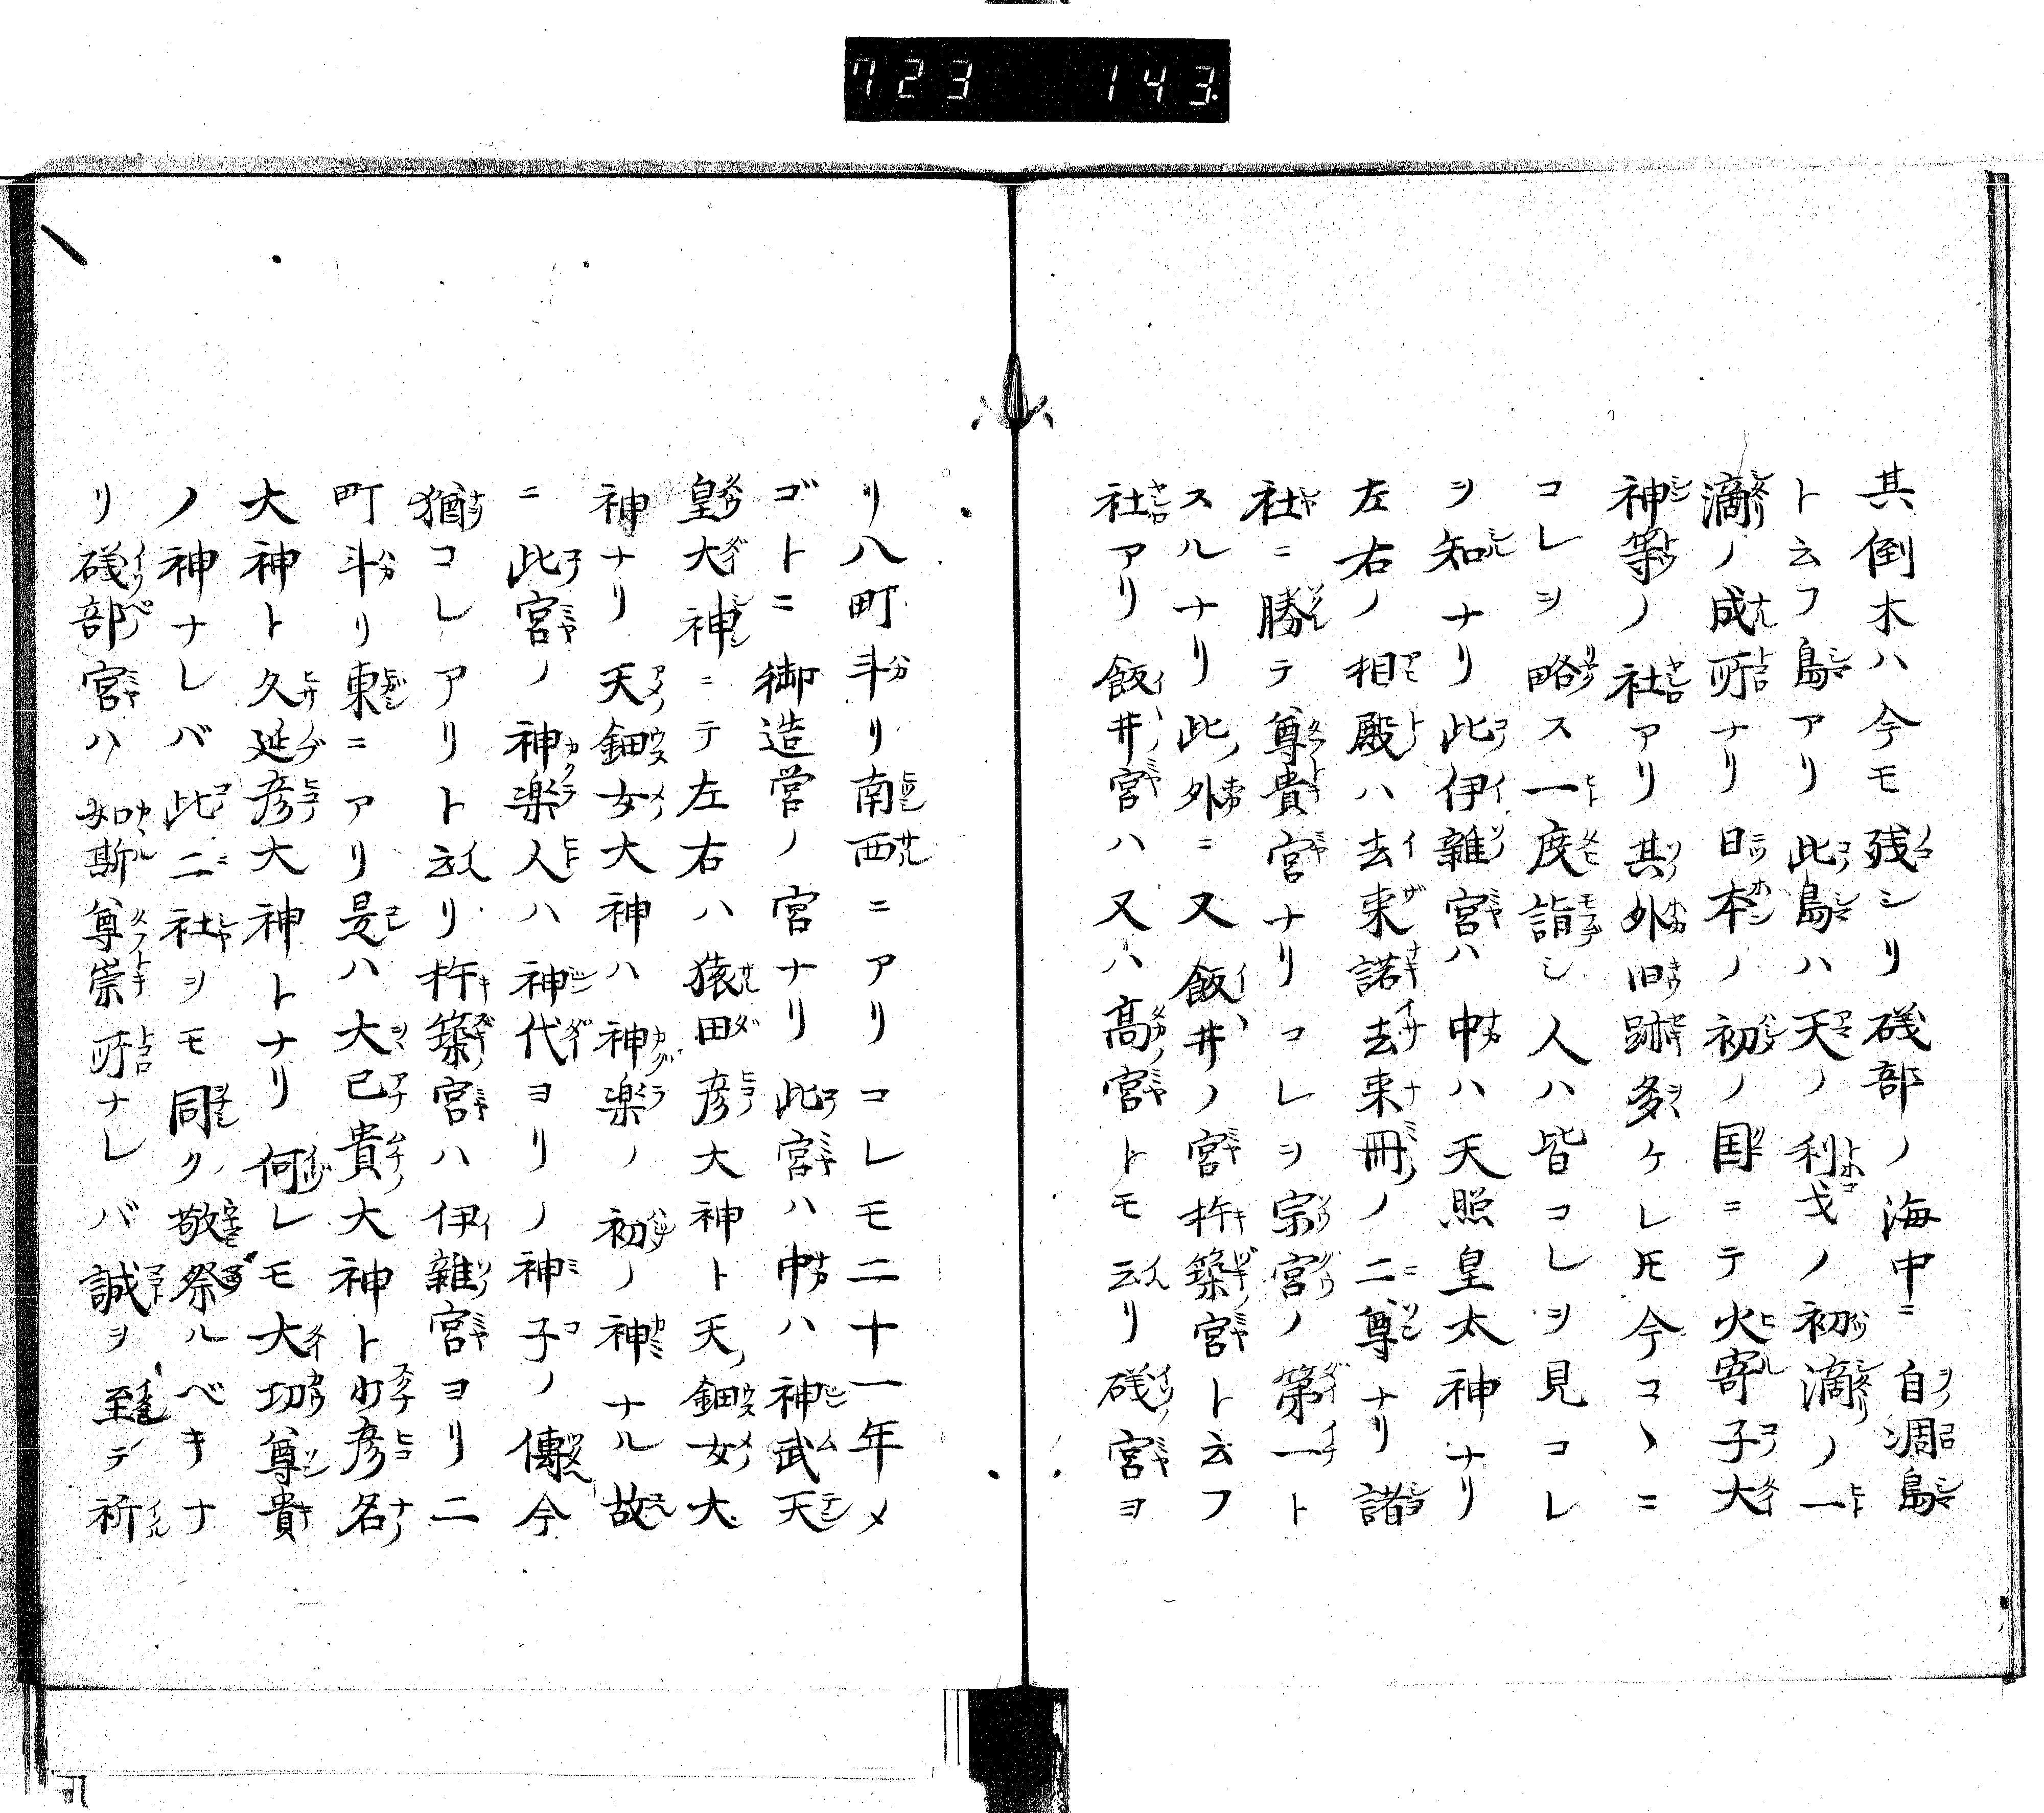 723 143.
其倒木ハ今モ残シリ磯部ノ海中ニ自凋島
ト云フ島アリ此島ハ天ノ利戈ノ初滴ノ一
滴ノ成所ナリ日本ノ初ノ国ニテ火寄子大
神等ノ社アリ其外旧跡多ケレ𪜈今コヽニ
コレヲ略ス一度詣シ人ハ皆コレヲ見コレ
ヲ知ナリ此伊雜宮ハ中ハ天照皇太神ナリ
左右ノ相殿ハ去来諾去来冊ノ二尊ナリ諸
社ニ勝テ尊貴宮ナリコレヲ宗宮ノ第一ト
スルナリ此外ニ又飯井ノ宮杵築宮ト云フ
社アリ飯井宮ハ又ハ高宮トモ云リ磯宮ヨ
リ八町斗リ南西ニアリコレモ二十一年メ
ゴトニ御造営ノ宮ナリ此宮ハ中ハ神武天
皇大神ニテ左右ハ猿田彦大神ト天鈿女大
神ナリ天鈿女大神ハ神楽ノ初ノ神ナル故
ニ此宮ノ神楽人ハ神代ヨリノ神子ノ傳今
猶コレアリト云リ杵築宮ハ伊雜宮ヨリ二
町斗リ東ニアリ是ハ大己貴大神ト少彦名
大神ト久延彦大神トナリ何レモ大功尊貴
ノ神ナレバ此二社ヲモ同ク敬祭ルベキナ
リ磯部宮ハ如斯尊崇所ナレバ誠ヲ至テ祈